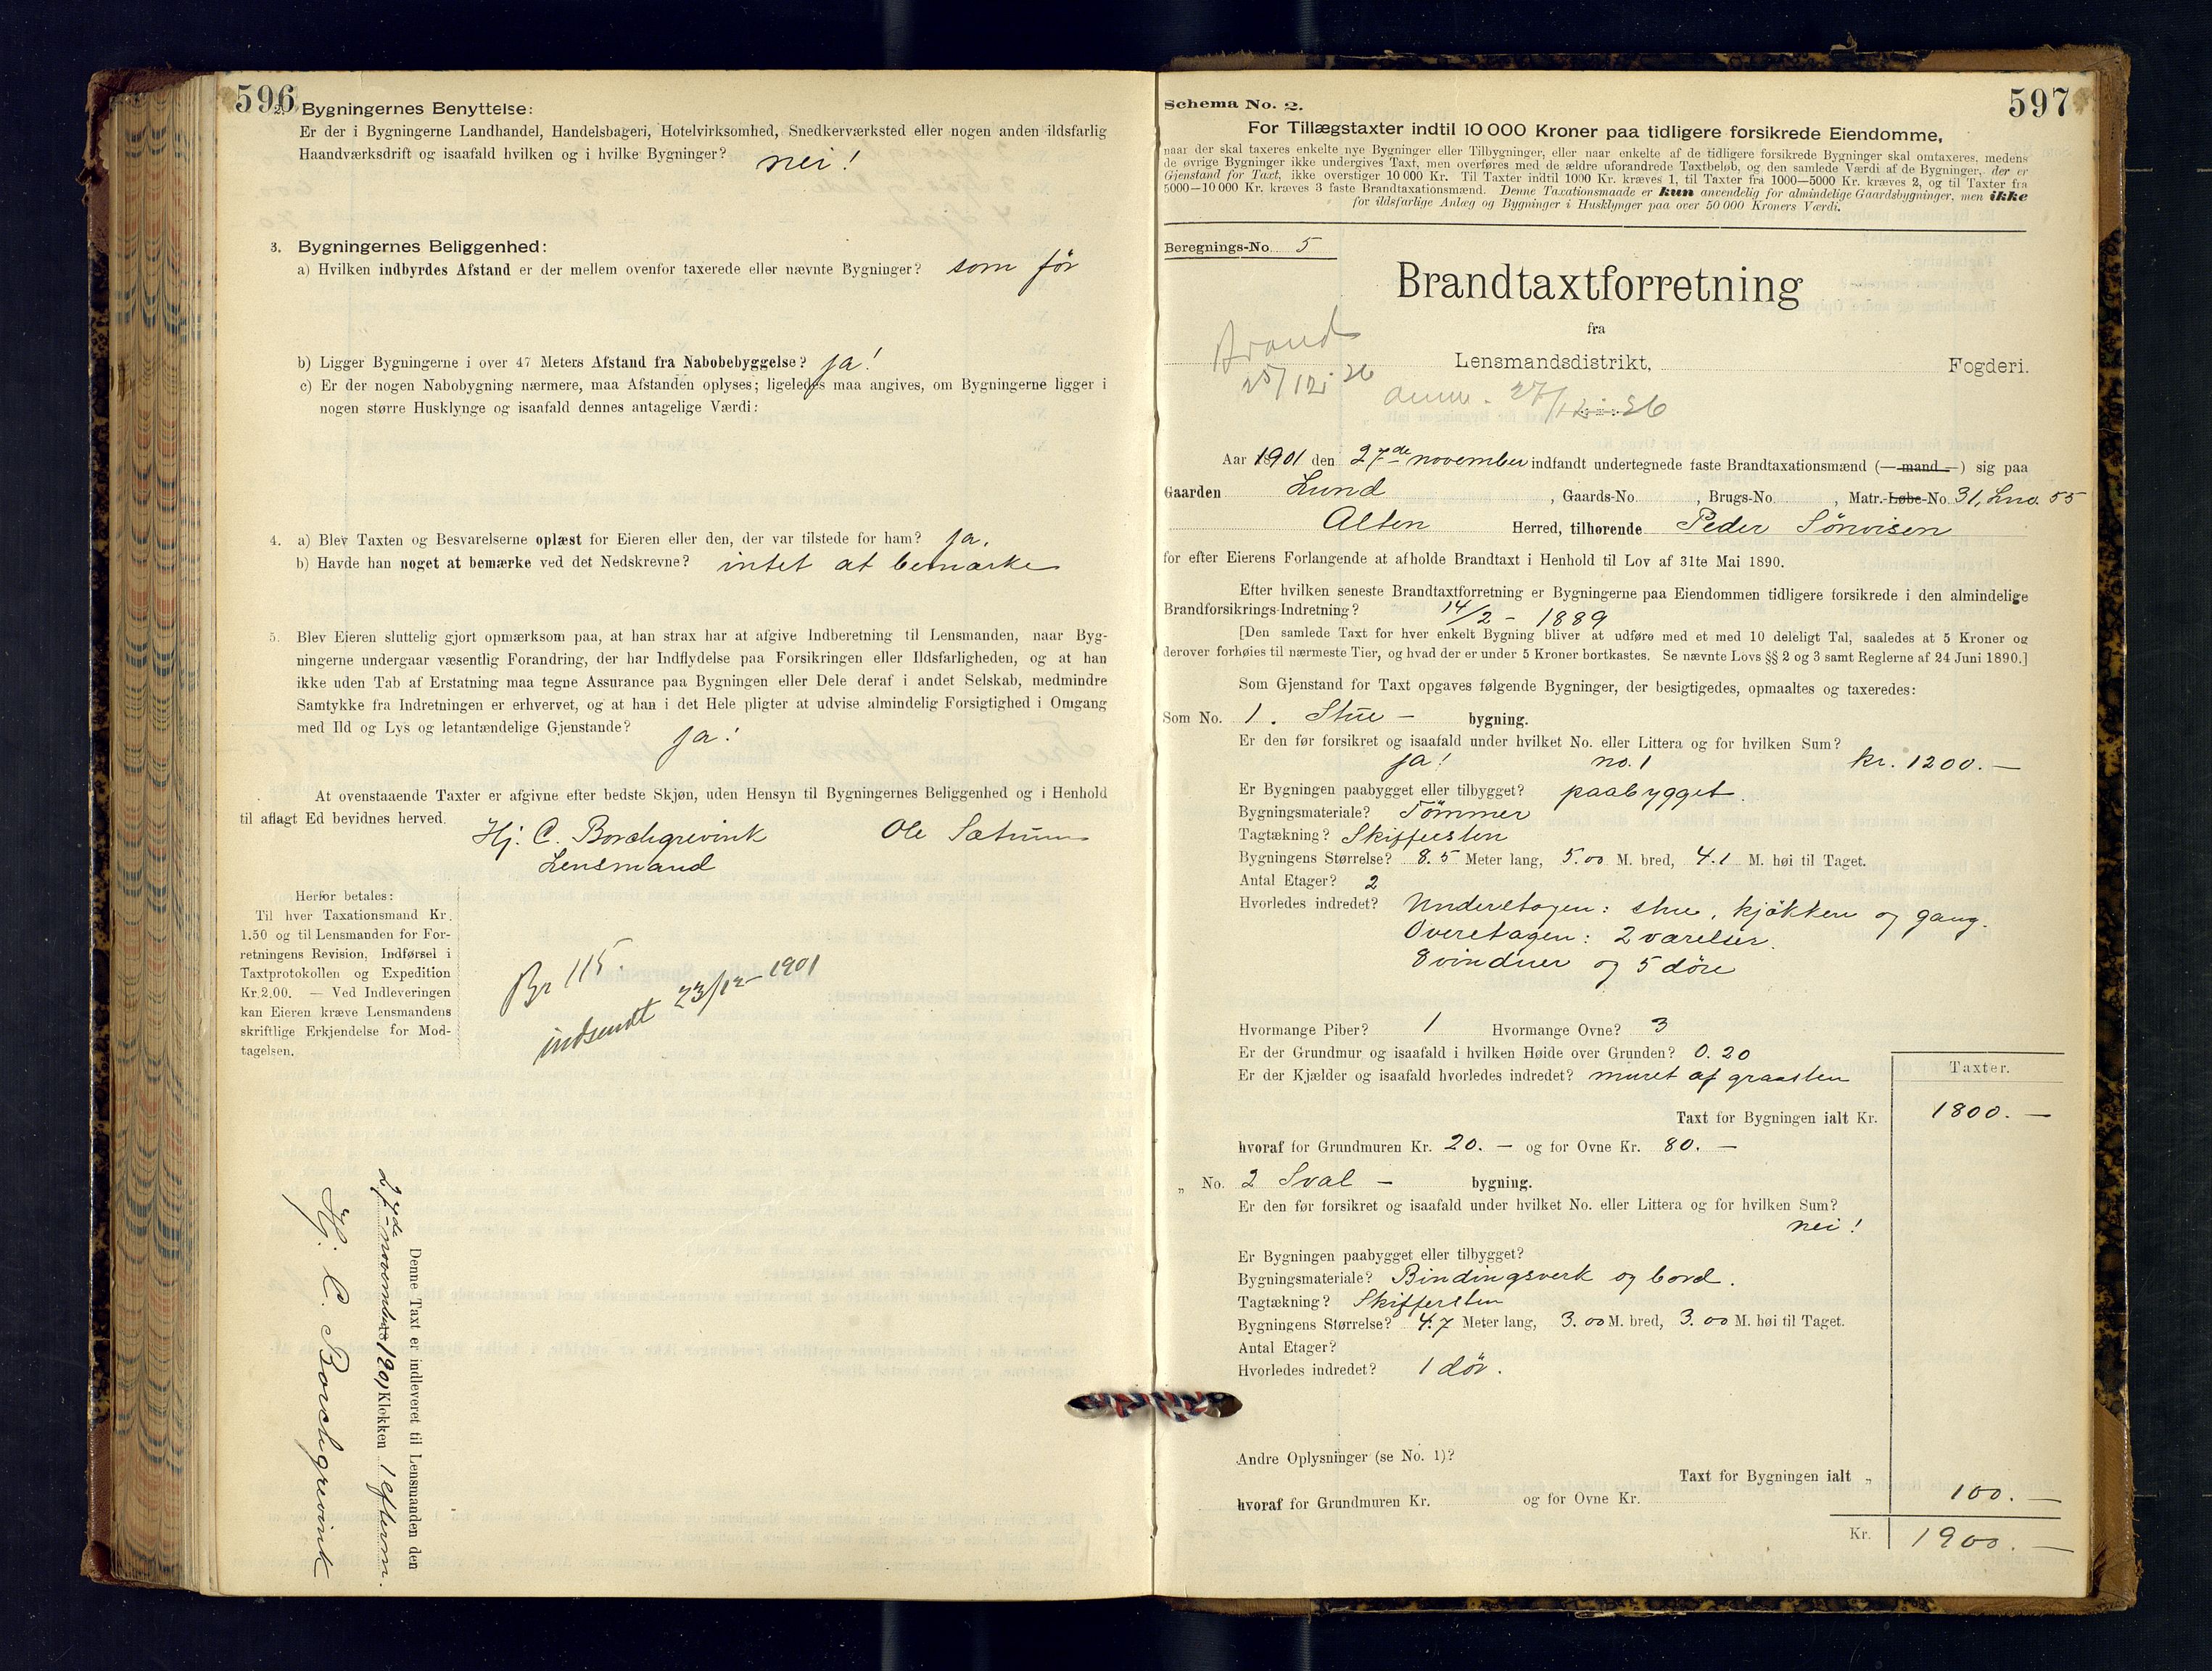 596
2. Bygningernes Benyttelse:
Er der i Bygningerne Landhandel, Handelsbageri, Hotelvirksomhed, Snedkerværksted eller nogen anden ildsfarlig
Haandværksdrift og isaafald hvilken og i hvilke Bygninger? nei!
3. Bygningernes Beliggenhed:
a) Hvilken indbyrdes Afstand er der mellem ovenfor taxerede eller nævnte Bygninger? som før
b) Ligger Bygningerne i over 47 Meters Afstand fra Nabobebyggelse? ja!
c) Er der nogen Nabobygning nærmere, maa Afstanden oplyses; ligeledes maa angives, om Bygningerne ligger i
nogen større Husklynge og isaafald dennes antagelige Værdi:
4. a) Blev Taxten og Besvarelserne oplæst for Eieren eller den, der var tilstede for ham? ja.
b) Havde han noget at bemærke ved det Nedskrevne? intet at bemærke
5. Blev Eieren sluttelig gjort opmærksom paa, at han strax har at afgive Indberetning til Lensmanden, naar Byg-
ningerne undergaar væsentlig Forandring, der har Indflydelse paa Forsikringen eller Ildsfarligheden, og at han
ikke uden Tab af Erstatning maa tegne Assurance paa Bygningen eller Dele deraf i andet Selskab, medmindre
Samtykke fra Indretningen er erhvervet, og at han i det Hele pligter at udvise almindelig Forsigtighed i Omgang
med Ild og Lys og letantændelige Gjenstande? ja!
At ovenstaaende Taxter er afgivne efter bedste Skjøn, uden Hensyn til Bygningernes Beliggenhed og i Henhold
til aflagt Ed bevidnes herved.
Hj. C. Borchgrevink Ole Sætrum
Lensmand
Herfor betales:
Til hver Taxationsmand Kr.
1.50 og til Lensmanden for For-
retningens Revision, Indførsel i
Taxtprotokollen og Expedition
Kr. 2.00. — Ved Indleveringen
kan Eieren kræve Lensmandens
skriftlige Erkjendelse for Mod-
tagelsen.
Br 115.
indsendt 23/12 1901
Denne Taxt er indleveret til Lensmanden den
27de november 1901 Klokken 1 efterm.
Hj. C. Borchgrevink
597
Schema No. 2.
For Tillægstaxter indtil 10 000 Kroner paa tidligere forsikrede Eiendomme,
naar der skal taxeres enkelte nye Bygninger eller Tilbygninger, eller naar enkelte af de tidligere forsikrede Bygninger skal omtaxeres, medens
de øvrige Bygninger ikke undergives Taxt, men overføres med de ældre uforandrede Taxtbeløb, og den samlede Værdi af de Bygninger, der er
Gjenstand for Taxt, ikke overstiger 10 000 Kr. Til Taxter indtil 1000 Kr. kræves 1, til Taxter fra 1000—5000 Kr. kræves 2, og til Taxter fra
5000—10 000 Kr. kræves 3 faste Brandtaxationsmænd. Denne Taxationsmaade er kun anvendelig for almindelige Gaardsbygninger, men ikke
for ildsfarlige Anlæg og Bygninger i Husklynger paa over 50 000 Kroners Værdi.
Beregnings-No. 5
Brandtaxtforretning
fra
Lensmandsdistrikt, Fogderi.
Brand
25/12 26
anm. 27/12 26
Aar 1901 den 27de november indfandt undertegnede faste Brandtaxationsmænd (—mand—) sig paa
Gaarden Lund, Gaards-No. , Brugs-No. , Matr.-Løbe-No. 31, Lno. 55
Alten Herred, tilhørende Peder Sønvisen
for efter Eierens Forlangende at afholde Brandtaxt i Henhold til Lov af 31te Mai 1890.
Efter hvilken seneste Brandtaxtforretning er Bygningerne paa Eiendommen tidligere forsikrede i den almindelige
Brandforsikrings-Indretning? 14/2 - 1889
[Den samlede Taxt for hver enkelt Bygning bliver at udføre med et med 10 deleligt Tal, saaledes at 5 Kroner og
derover forhøies til nærmeste Tier, og hvad der er under 5 Kroner bortkastes. Se nævnte Lovs §§ 2 og 3 samt Reglerne af 24 Juni 1890.]
Som Gjenstand for Taxt opgaves følgende Bygninger, der besigtigedes, opmaaltes og taxeredes:
Som No. 1. Stue — bygning.
Er den før forsikret og isaafald under hvilket No. eller Littera og for hvilken Sum?
ja! no. 1 kr. 1200.—
Er Bygningen paabygget eller tilbygget? paabygget.
Bygningsmateriale? Tømmer
Tagtækning? Skiffersten
Bygningens Størrelse? 8.5 Meter lang, 5.00 M. bred, 4.1 M. høi til Taget.
Antal Etager? 2
Hvorledes indredet? Underetagen: stue, kjøkken og gang.
Overetagen: 2 værelser.
8 vinduer og 5 døre
Hvormange Piber? 1 Hvormange Ovne? 3
Er der Grundmur og isaafald i hvilken Høide over Grunden? 0.20
Er der Kjælder og isaafald hvorledes indredet? muret af graasten
Taxter.
Taxt for Bygningen ialt Kr. 1800.—
hvoraf for Grundmuren Kr. 20.— og for Ovne Kr. 80.—
„ No. 2 Sval — bygning.
Er den før forsikret og isaafald under hvilket No. eller Littera og for hvilken Sum?
nei!
Er Bygningen paabygget eller tilbygget?
Bygningsmateriale? Bindingsverk og bord.
Tagtækning? Skiffersten
Bygningens Størrelse? 4.7 Meter lang, 3.00 M. bred, 3.00 M. høi til Taget.
Antal Etager?
Hvorledes indredet? 1 dør.
Andre Oplysninger (se No. 1)?
Taxt for Bygningen ialt „ 100.—
hvoraf for Grundmuren Kr. og for Ovne Kr.
Kr. 1900.—